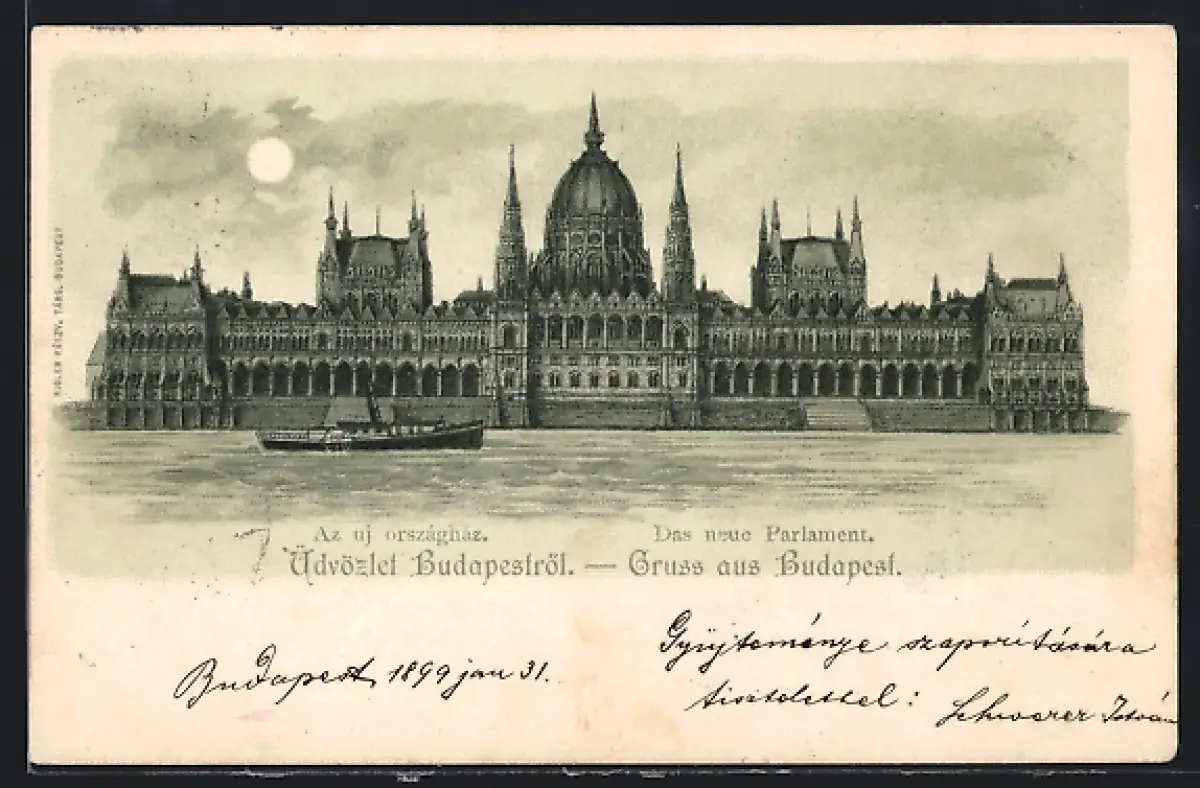 RIGLER RÉSZV. TÁRS. BUDAPEST
Az uj országház. Das neue Parlament.
Üdvözlet Budapestről. — Gruss aus Budapest.
Budapest, 1899 jan 31.
Gyüjteménye szaporítására
tisztelettel:
Schwarer István